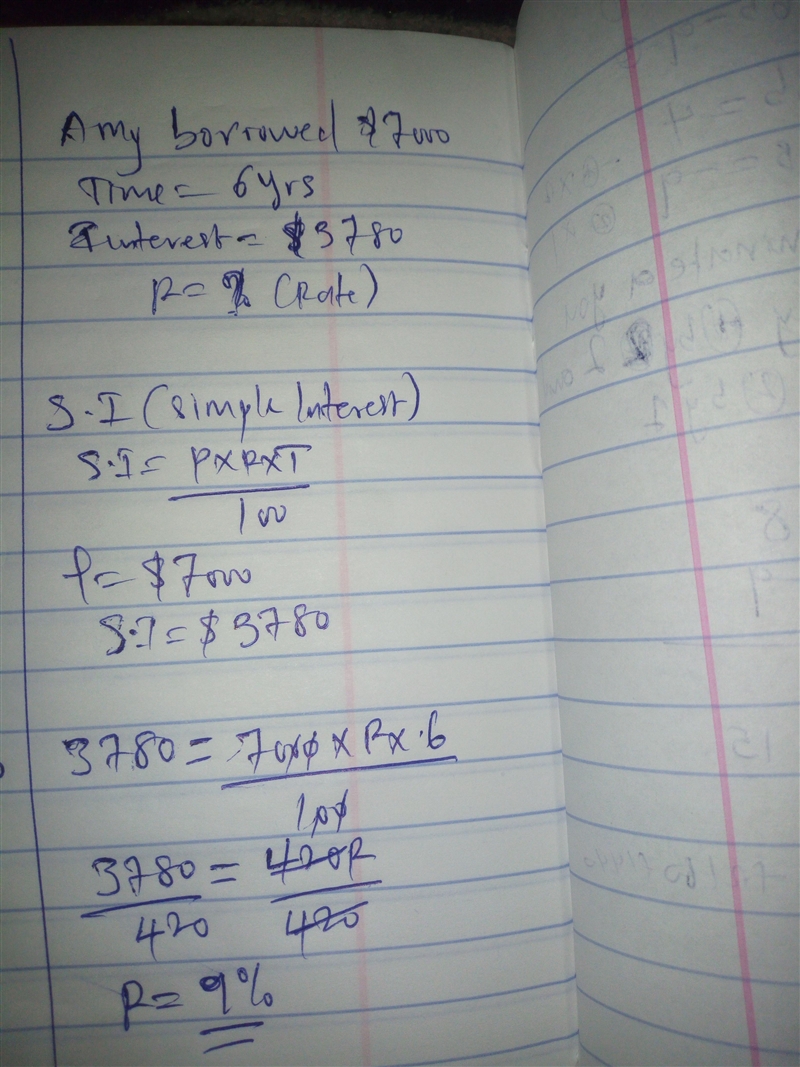 Amy borrowed $7000
Time = 6yrs
Interest = $3780
R = ? (Rate)
S.I (simple Interest)
S.I = PxRxT
100
P = $7000
S.I = $3780
3780 = 7000 x R x 6
100
3780 = 420R
420 420
R = 9%